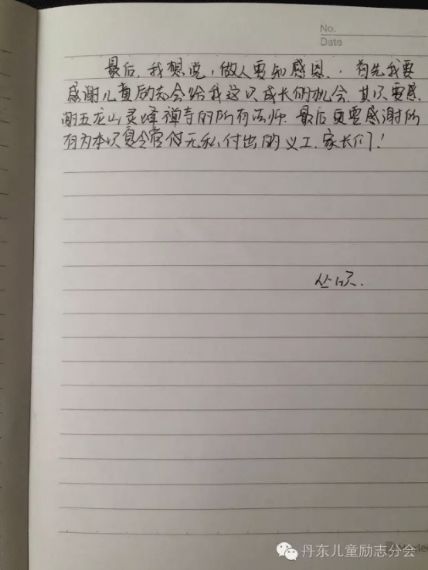 No.
Date
最后，我想说，做人要知感恩．首先我要
感谢儿童励志会给我这次成长的机会．其次要感
谢五龙山灵峰禅寺的所有法师．最后更要感谢所
有为本次夏令营付无私付出的义工．家长们！
丹东儿童励志分会